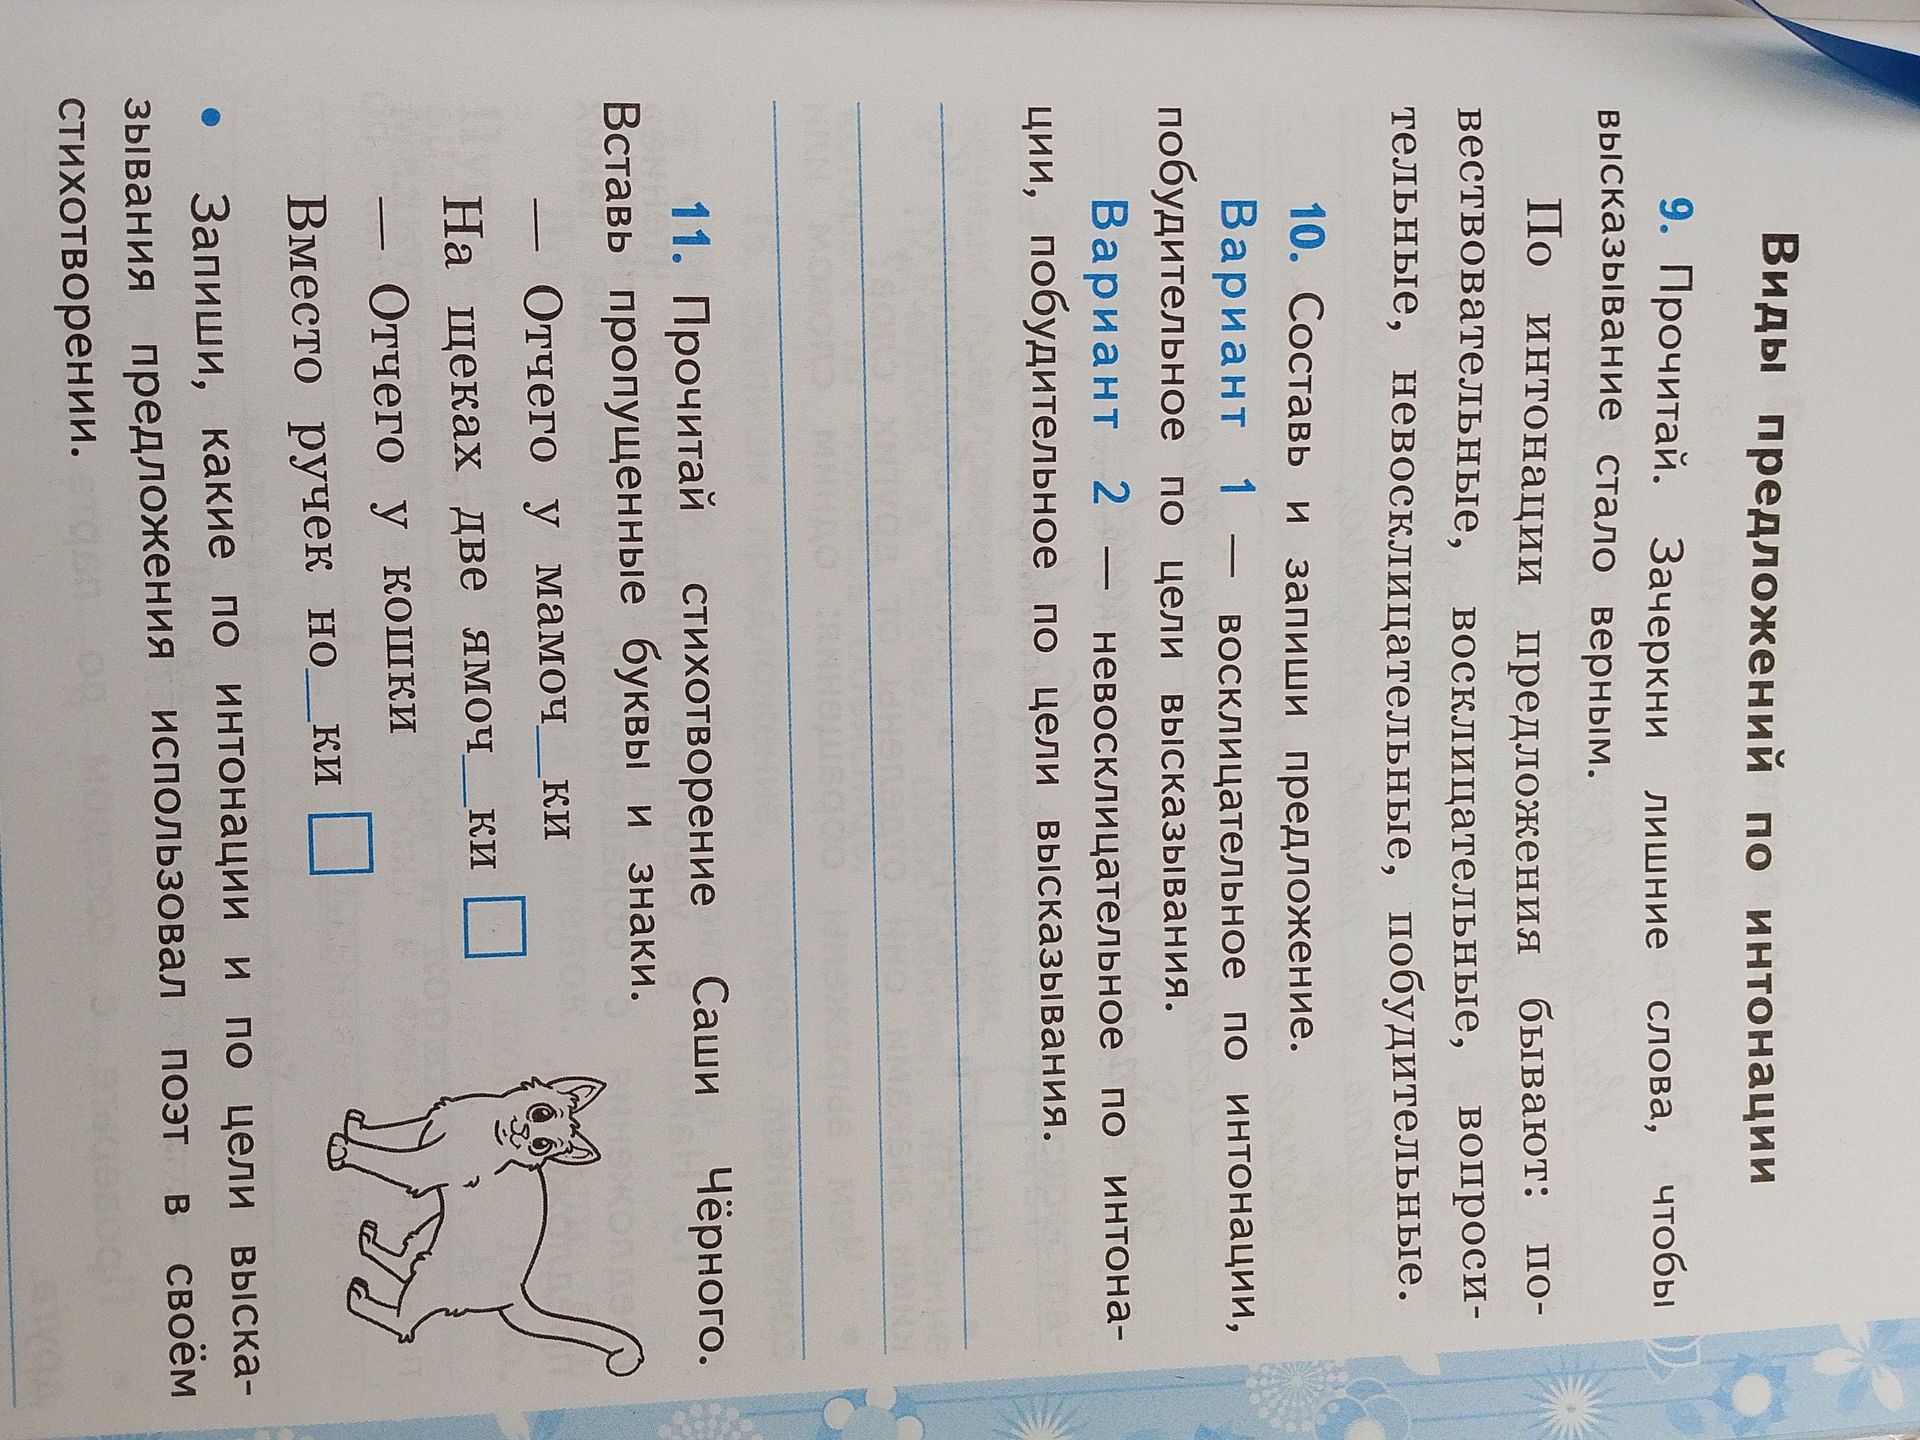 Виды предложений по интонации
9. Прочитай. Зачеркни лишние слова, чтобы
высказывание стало верным.
По интонации предложения бывают: по-
вествовательные, восклицательные, вопроси-
тельные, невосклицательные, побудительные.
10. Составь и запиши предложение.
Вариант 1 — восклицательное по интонации,
побудительное по цели высказывания.
Вариант 2 — невосклицательное по интона-
ции, побудительное по цели высказывания.
11. Прочитай стихотворение Саши Чёрного.
Вставь пропущенные буквы и знаки.
— Отчего у мамоч__ки
На щеках две ямоч__ки
— Отчего у кошки
Вместо ручек но__ки
• Запиши, какие по интонации и по цели выска-
зывания предложения использовал поэт в своём
стихотворении.